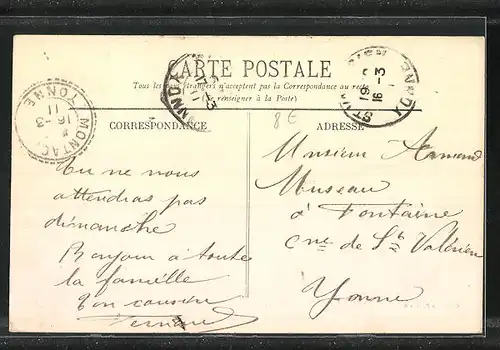 CARTE POSTALE
Tous les pays étrangers n'acceptent pas la Correspondance au recto
(Se renseigner à la Poste)
CORRESPONDANCE
ADRESSE
8 E
MONTAC
YONNE
16-3
11
YONNE
16-3
Tu ne nous
attendras pas
dimanche
Bonjour à toute
la famille
Ton cousin
Fernand
Monsieur Armand
Museau
à Fontaine
cne de St Valérien
Yonne